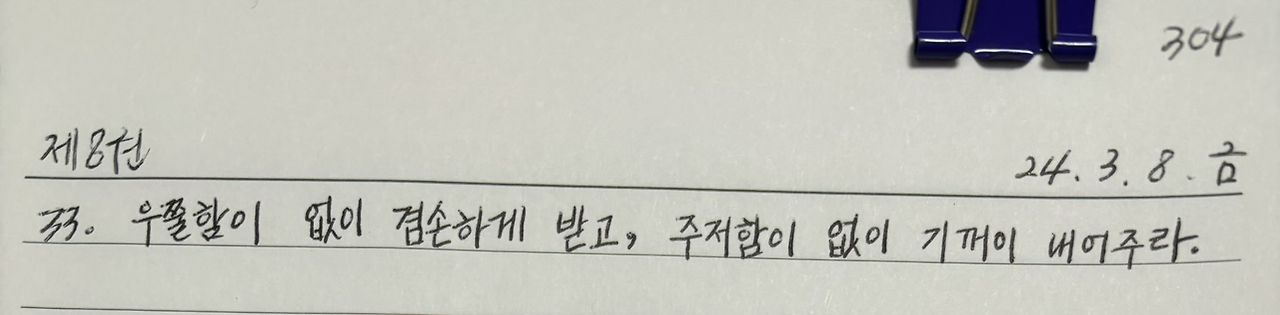 304
제8권
24. 3. 8. 금
33. 우쭐함이 없이 겸손하게 받고, 주저함이 없이 기꺼이 내어주라.